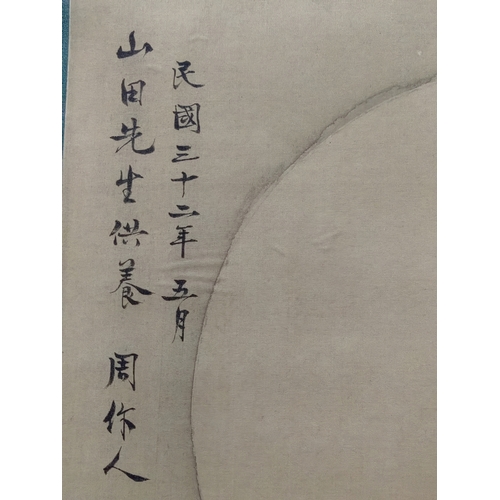 民國三十二年 五月
山田先生供養 周作人